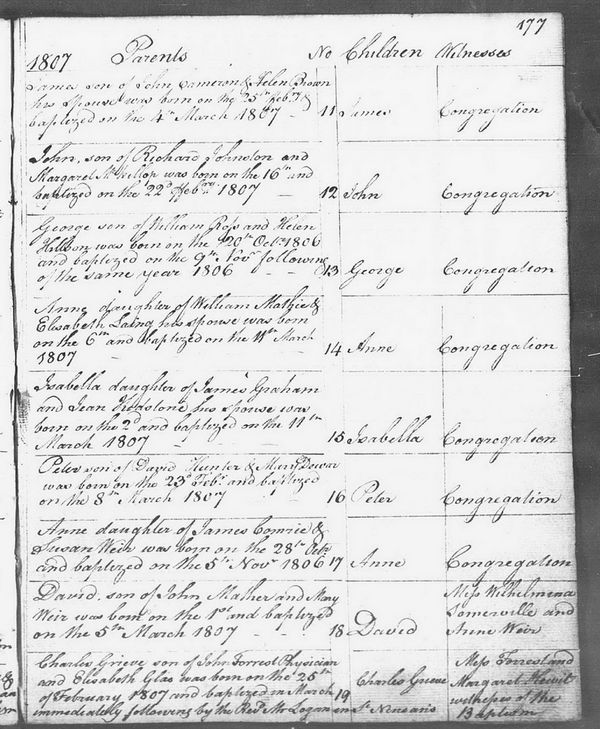 177
1807 Parents No Children Witnesses
James son of John Cameron & Helen Brown
his spouse was born on the 25th Febry &
baptized on the 4th March 1807 11 James Congregation
John, son of Richard Johnston and
Margaret was born on the 16th and
baptized on the 22d Febry 1807 12 John Congregation
George son of William Ross and Helen
was born on the 20th Octr 1806
and baptized on the 9th Novr following
of the same year 1806 13 George Congregation
Anne daughter of William Mathie &
Elisabeth Laing his spouse was born
on the 6th and baptized on the March
1807 14 Anne Congregation
Isabella daughter of James Graham
and Jean his spouse was
born on the 2d and baptized on the 11th
March 1807 15 Isabella Congregation
Peter son of David Hunter & Mary Dewar
was born on the 23d Febr and baptized
on the 8th March 1807 16 Peter Congregation
Anne daughter of James Comrie &
Susan Weir was born on the 28th Octr
and baptized on the 5th Novr 1806 17 Anne Congregation
David, son of John Mather and Mary
Weir was born on the 1st and baptized
on the 5th March 1807 18 David
Miss Wilhelmina
Somerville and
Anne Weir
Charles Grieve son of John Forrest Physician
and Elisabeth Glas was born on the 25th
of February 1807 and baptized in March 19
immediately following by the Revd Mr Logan in St Ninians
Charles Grieve
Miss Forrest and
Margaret
witnesses of the
Baptism